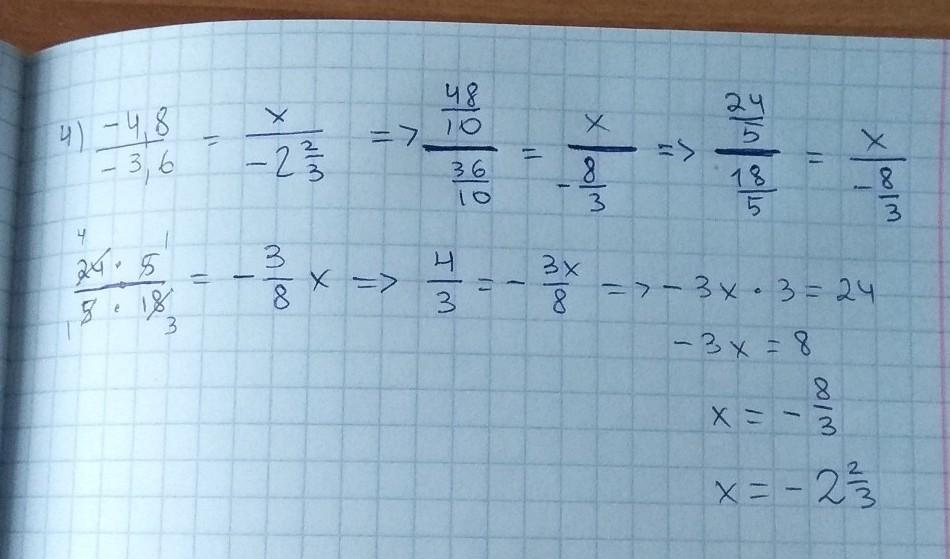 4) -4,8/-3,6 = x/(-2 2/3) => (48/10)/(36/10) = x/(-8/3) => (24/5)/(18/5) = x/(-8/3)
4 1
24 · 5 / 5 · 18 = -3/8 x => 4/3 = -3x/8 => -3x · 3 = 24
1 3
-3x = 8
x = -8/3
x = -2 2/3